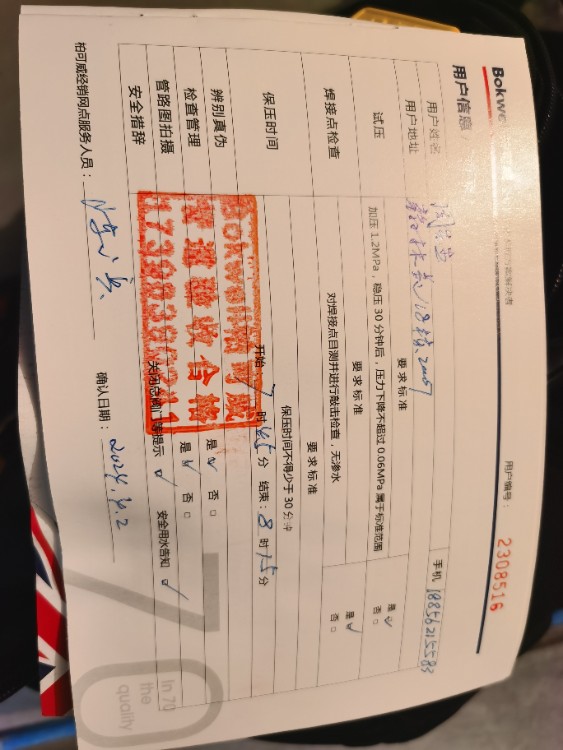 Bokwe
用户信息
用户编号：
2308516
用户姓名
手机 18856215583
用户地址
要 求 标 准
试压
加压 1.2MPa，稳压 30 分钟后，压力下降不超过 0.06MPa 属于标准范围
是 ☑
否 □
要 求 标 准
焊接点检查
对焊接点目测并进行敲击检查，无渗水
是 ☑
否 □
要 求 标 准
保压时间
保压时间不得少于 30 分钟
开始 7 时 45 分 结束：8 时 15 分
辨别真伪
是 ☑ 否 □
检查管理
是 ☑ 否 □
管路图拍摄
安全措辞
关闭总阀门等提示 ☑ 安全用水告知 ☑
Bokwe柏可威
管道验收合格
柏可威经销网点服务人员：
确认日期：2024.4.2
70
In 70
the
quality